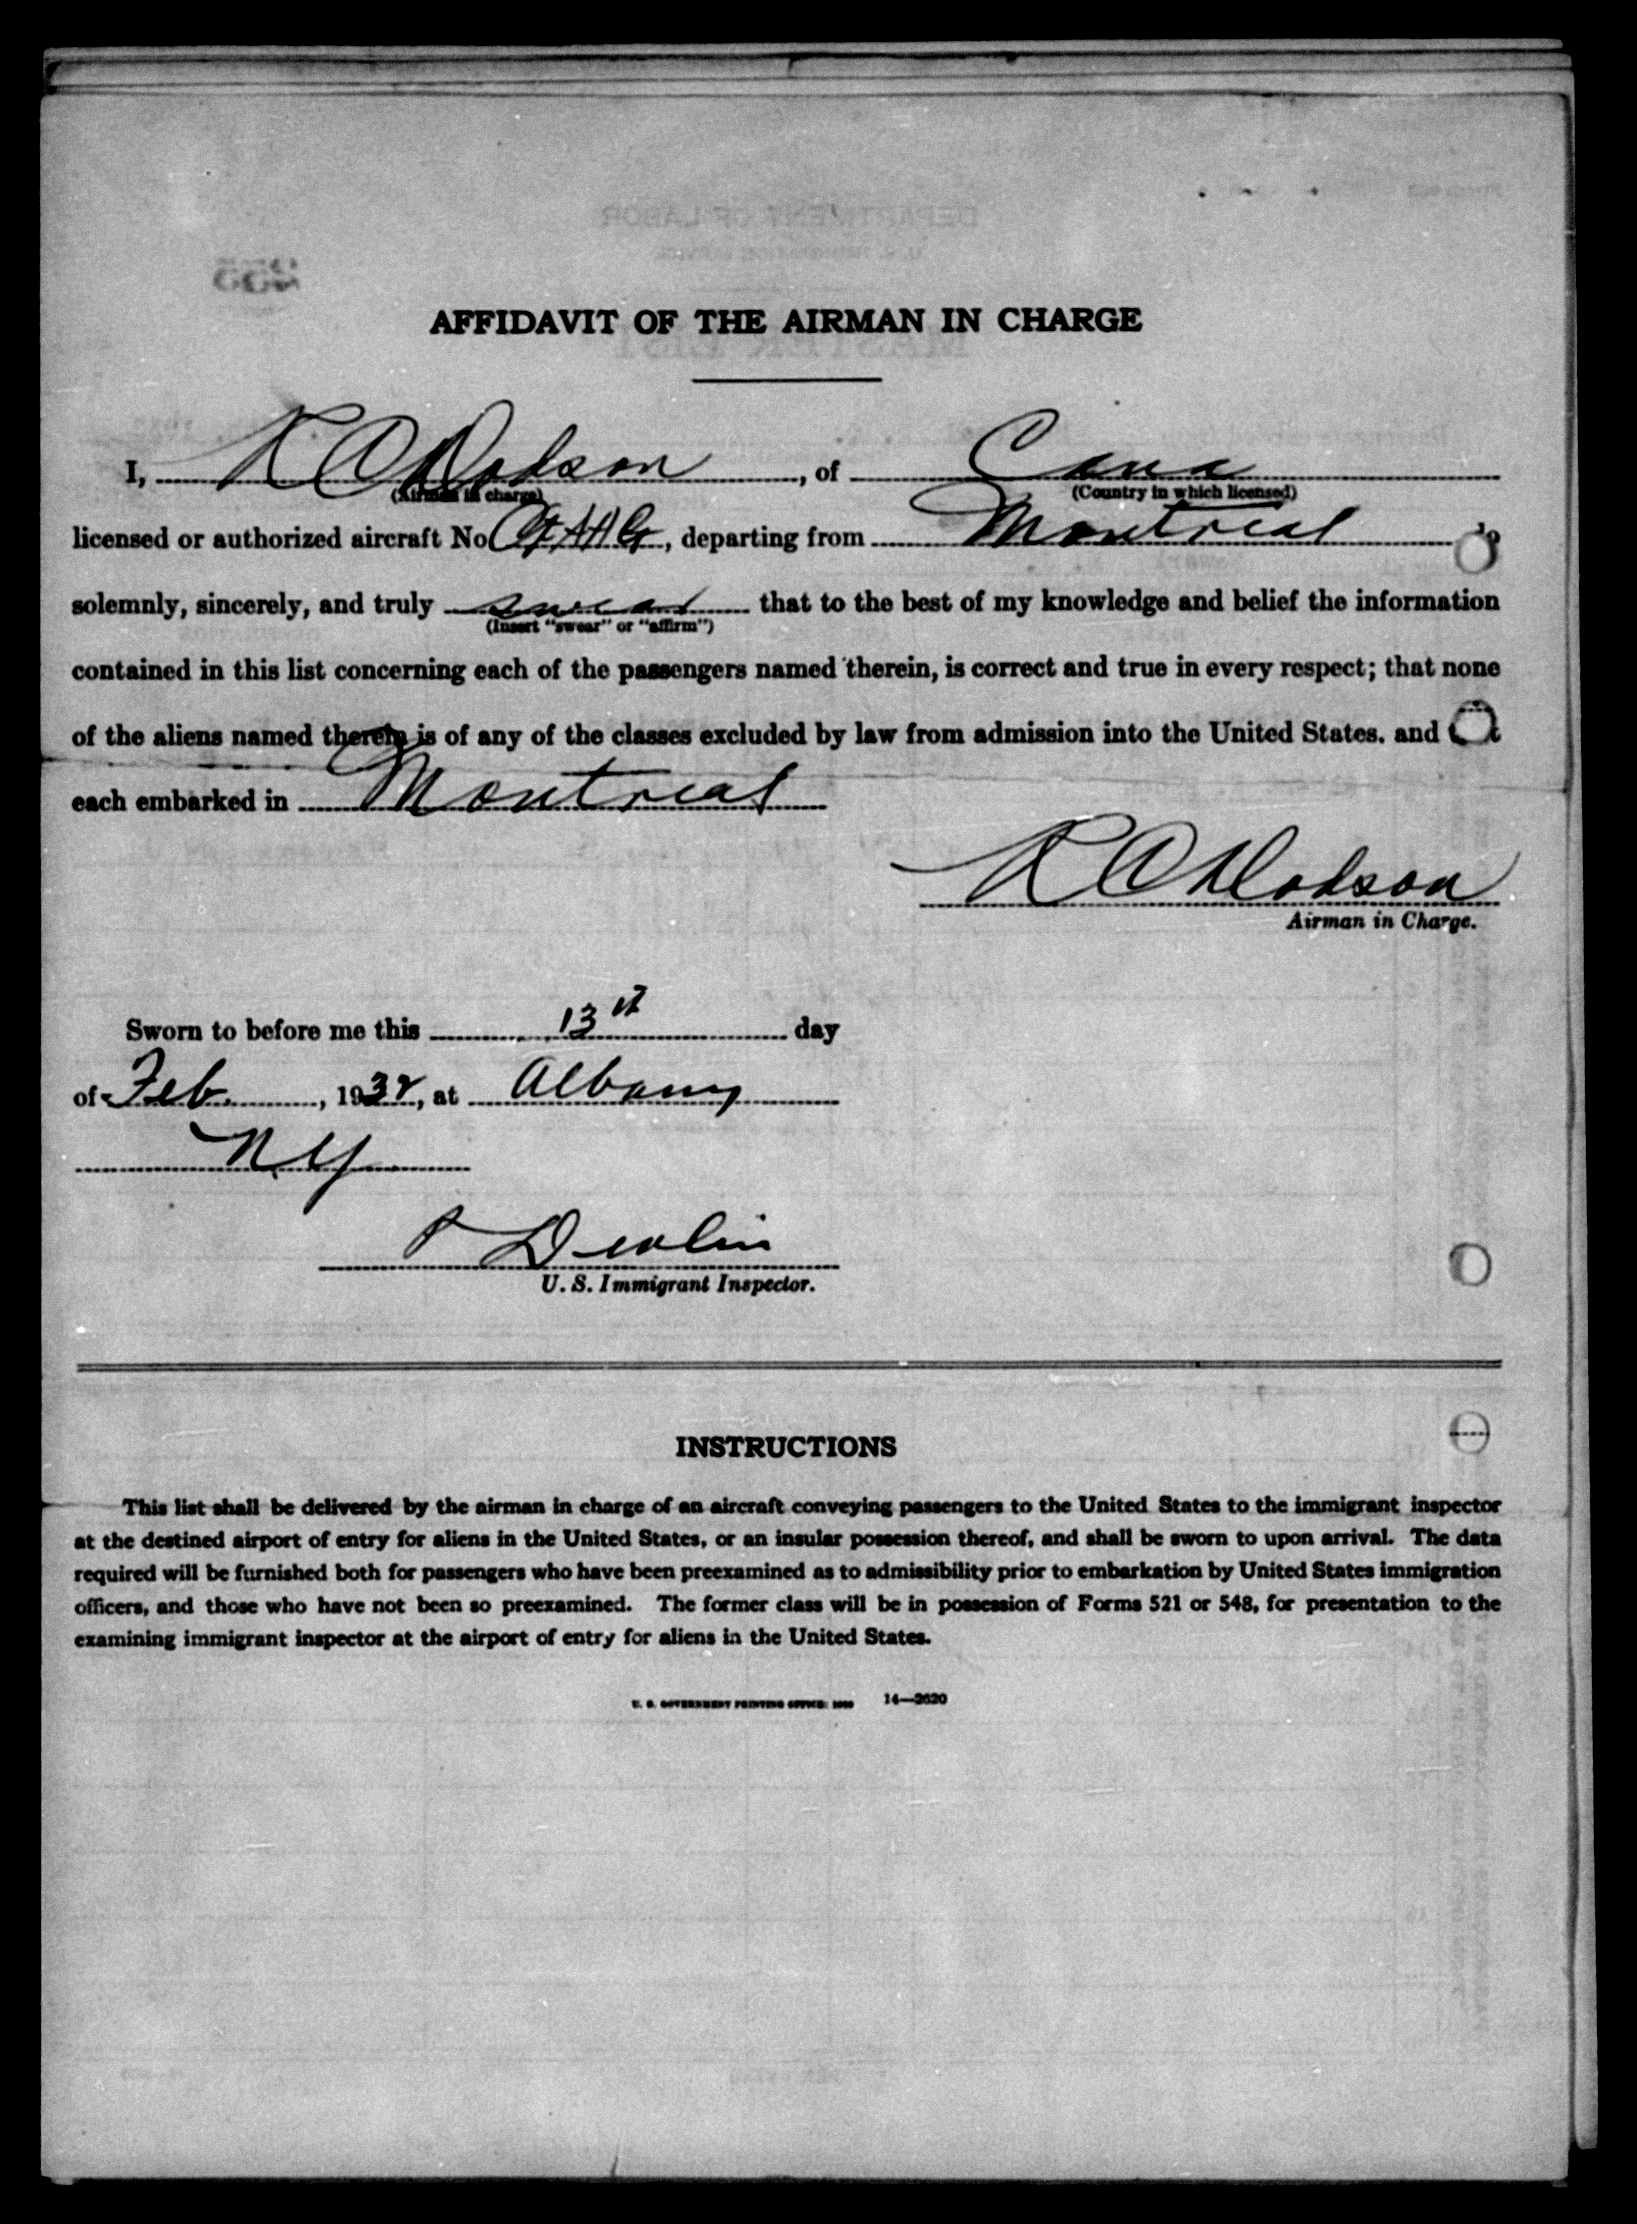 AFFIDAVIT OF THE AIRMAN IN CHARGE
I, R A Dodson, of Cana
(Airman in charge) (Country in which licensed)
licensed or authorized aircraft No. departing from Montreal
solemnly, sincerely, and truly swear that to the best of my knowledge and belief the information
(Insert "swear" or "affirm")
contained in this list concerning each of the passengers named therein, is correct and true in every respect; that none
of the aliens named therein is of any of the classes excluded by law from admission into the United States, and
each embarked in Montreal
R A Dodson
Airman in Charge.
Sworn to before me this 13 day
of Feb., 1932, at Albany
N.Y
P Devlin
U. S. Immigrant Inspector.
INSTRUCTIONS
This list shall be delivered by the airman in charge of an aircraft conveying passengers to the United States to the immigrant inspector
at the destined airport of entry for aliens in the United States, or an insular possession thereof, and shall be sworn to upon arrival. The data
required will be furnished both for passengers who have been preexamined as to admissibility prior to embarkation by United States immigration
officers, and those who have not been so preexamined. The former class will be in possession of Forms 521 or 548, for presentation to the
examining immigrant inspector at the airport of entry for aliens in the United States.
U. S. GOVERNMENT PRINTING OFFICE: 14—2620